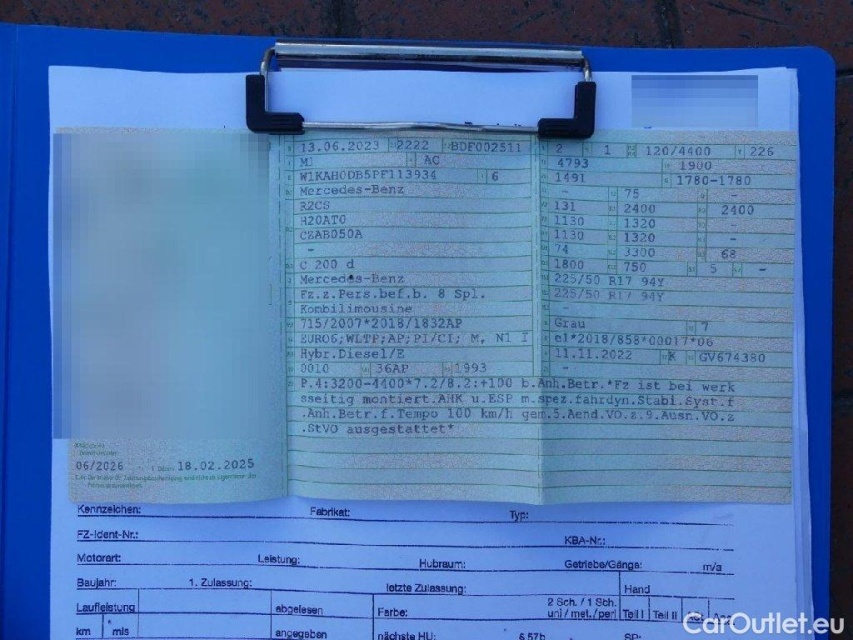 13.06.2023 2222 BDF002511 2 1 120/4400 226
M1 AC 4793 1900
W1KAH0DB5PF113934 6 1491 1780-1780
Mercedes-Benz - 75 -
R2CS 131 2400 2400
H20AT0 1130 1320 -
CZAB050A 1130 1320 -
- 74 3300 68
C 200 d 1800 750 5 -
Mercedes-Benz 225/50 R17 94Y
Fz.z.Pers.bef.b. 8 Spl. 225/50 R17 94Y
Kombilimousine -
715/2007*2018/1832AP Grau 7
EURO6;WLTP;AP;PI/CI; M, N1 I e1*2018/858*00017*06
Hybr.Diesel/E 11.11.2022 K GV674380
0010 36AP 1993 -
P.4:3200-4400*7.2/8.2:+100 b.Anh.Betr.*Fz ist bei werk
sseitig montiert.AHK u.ESP m.spez.fahrdyn.Stabi.Syst.f
.Anh.Betr.f.Tempo 100 km/h gem.5.Aend.VO.z.9.Ausn.VO.z
.StVO ausgestattet*
06/2026 18.02.2025
Kennzeichen: Fabrikat: Typ:
FZ-Ident-Nr.: KBA-Nr.:
Motorart: Leistung: Hubraum: Getriebe/Gänge: m/a
Baujahr: 1. Zulassung: letzte Zulassung: Hand
Laufleistung abgelesen Farbe: 2 Sch. / 1 Sch. uni / met./perl Teil I Teil II
km mls angegeben nächste HU: § 57b SP:
CarOutlet.eu